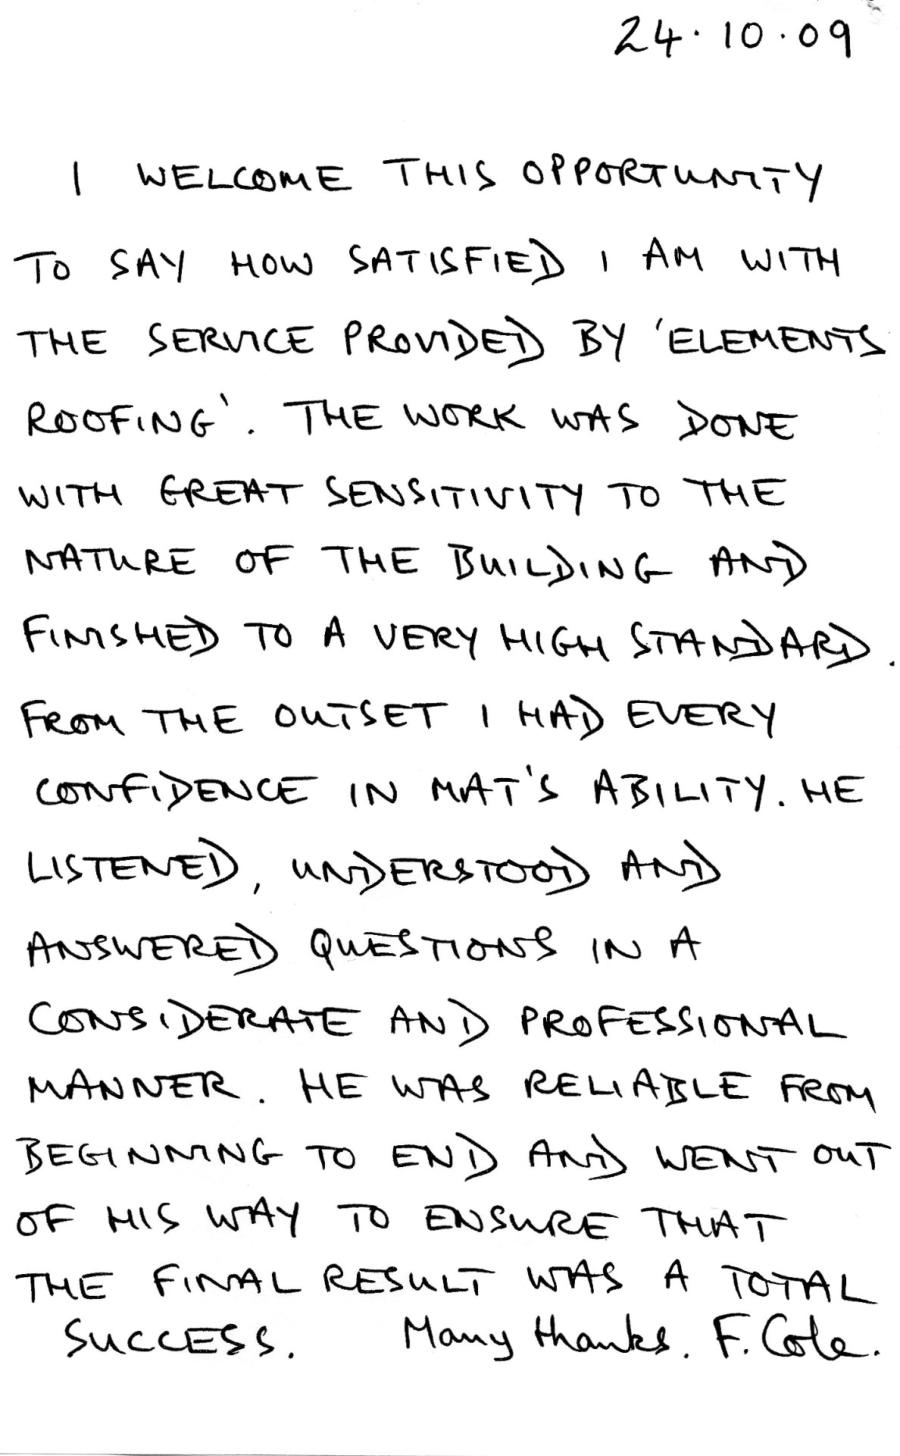 24.10.09
I WELCOME THIS OPPORTUNITY
TO SAY HOW SATISFIED I AM WITH
THE SERVICE PROVIDED BY 'ELEMENTS
ROOFING'. THE WORK WAS DONE
WITH GREAT SENSITIVITY TO THE
NATURE OF THE BUILDING AND
FINISHED TO A VERY HIGH STANDARD.
FROM THE OUTSET I HAD EVERY
CONFIDENCE IN MAT'S ABILITY. HE
LISTENED, UNDERSTOOD AND
ANSWERED QUESTIONS IN A
CONSIDERATE AND PROFESSIONAL
MANNER. HE WAS RELIABLE FROM
BEGINNING TO END AND WENT OUT
OF HIS WAY TO ENSURE THAT
THE FINAL RESULT WAS A TOTAL
SUCCESS. Many thanks. F. Cole.